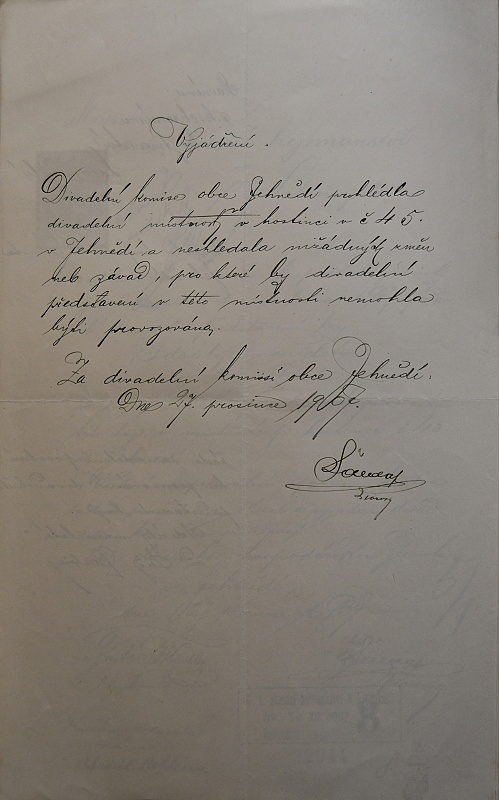 Vyjádření.
Divadelní komise obce Jehnědí prohlédla
divadelní místnost v hostinci v č 45.
v Jehnědí a neshledala nižádných změn
neb závad, pro které by divadelní
představení v této místnosti nemohla
býti provozována,
Za divadelní komisi obce Jehnědí.
Dne 27. prosince 1907.